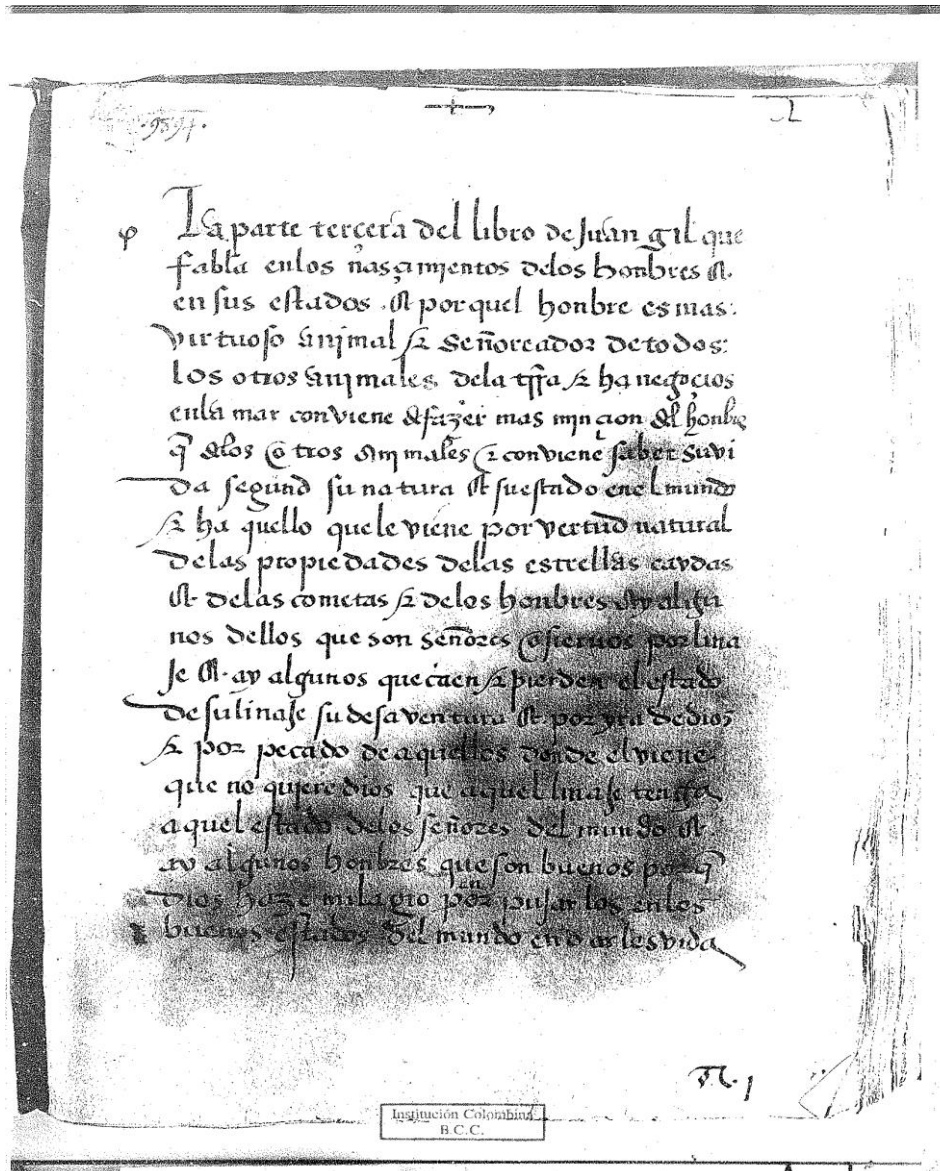 ·9594·
La parte terçera del libro de Juan gil que
fabla enlos nasçimientos delos honbres Et
en sus estados. Et porquel honbre es mas:
virtuoso animal & Señoreador detodos:
Los otros animales dela trra & ha negoçios
enla mar conviene de fazer mas minçion del honbre
q̃ delos otros animales & conviene saber suvi
da segund su natura Et suestado enel mundo
& ha quello quele viene por vertud natural
delas propiedades delas estrellas caydas
Et delas cometas & delos honbres ay algu
nos dellos que son señores o siervos por lina
je Et ay algunos que caen & pierden el estado
desulinaje su desaventura Et por yra de dios
& por pecado de aquellos donde el viene
que no quiere dios que aquel linaje tenga
aquel estado delos señores del mundo Et
ay algunos honbres que son buenos por q̃
dios haze milagro en por pujar los enlos
buenos estados del mundo en dar les vida
Institución Colombina
B.C.C.